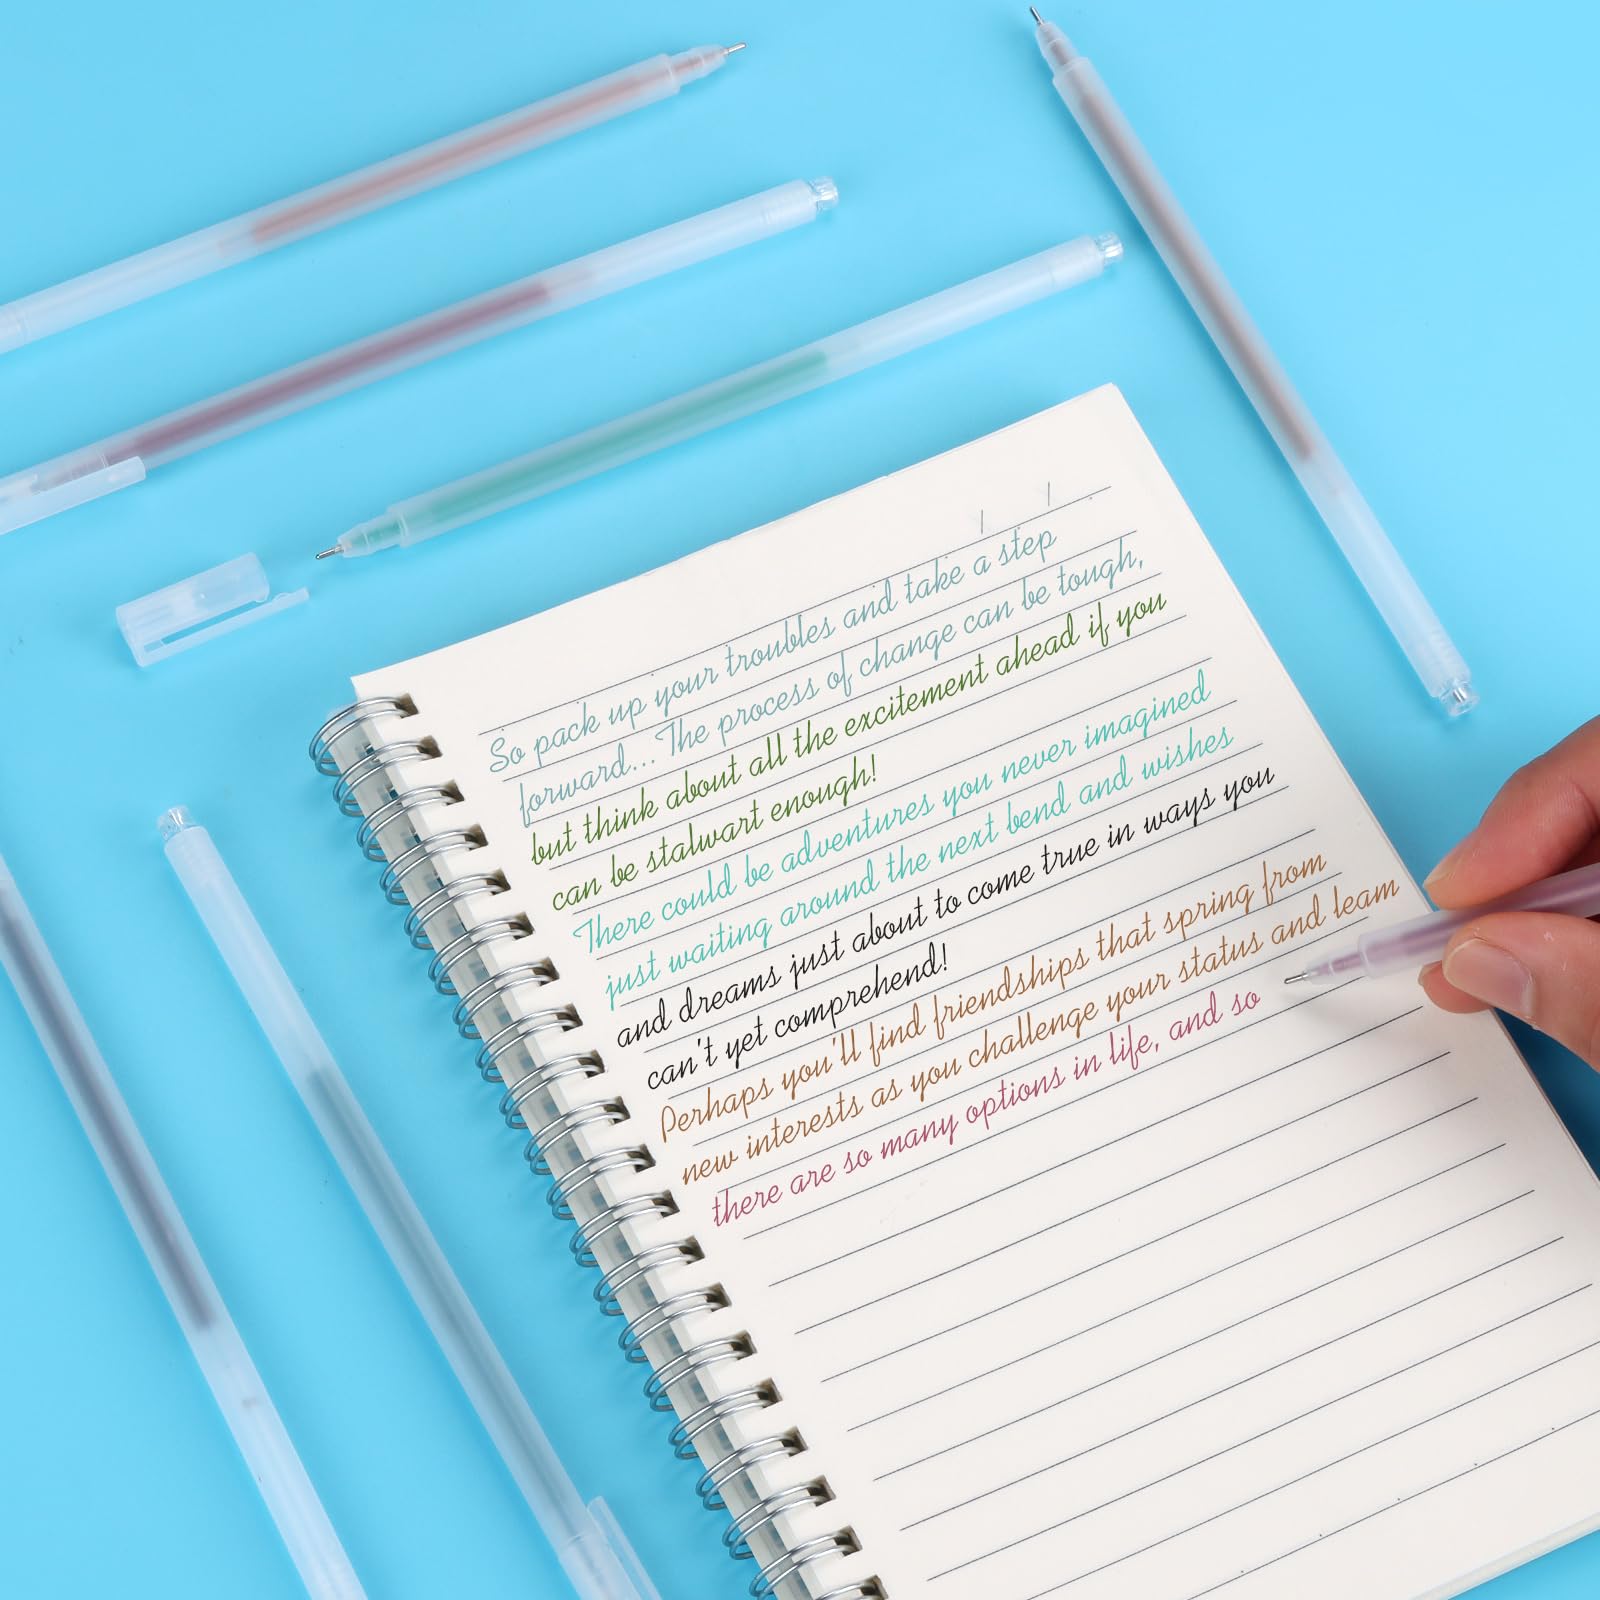 So pack up your troubles and take a step
forward... The process of change can be tough,
but think about all the excitement ahead if you
can be stalwart enough!
There could be adventures you never imagined
just waiting around the next bend and wishes
and dreams just about to come true in ways you
can't yet comprehend!
Perhaps you'll find friendships that spring from
new interests as you challenge your status and learn
there are so many options in life, and so